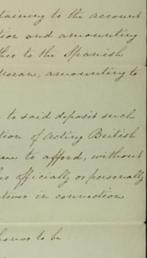 taining to the account
tion and amounting
the Spanish
amounting to
to said deposit such
tion of Acting British
to afford, without
officially or personally
in connection
honor to be